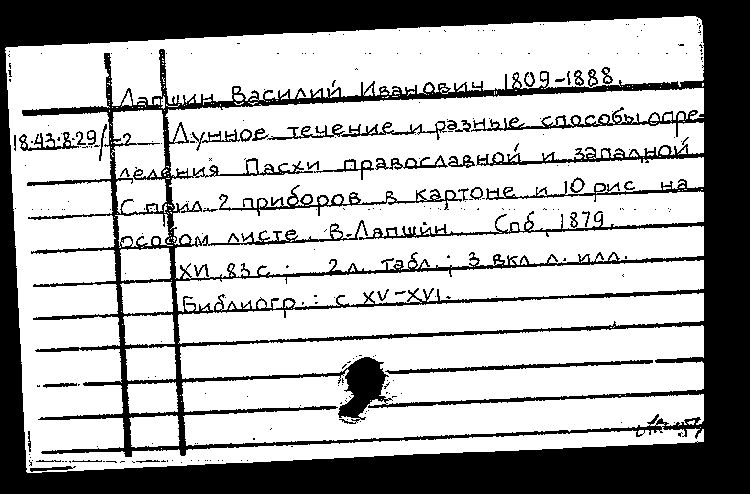 Лапшин, Василий Иванович 1809-1888.
18.43.8.29/1-2 Лунное течение и разные способы опре-
деления Пасхи православной и западной
С прил. 2 приборов в картоне и 10 рис на
особом листе. В. Лапшин. Спб, 1879.
XVI, 83 с.; 2 л. табл.; 3 вкл. л. илл.
Библиогр.: с XV-XVI.